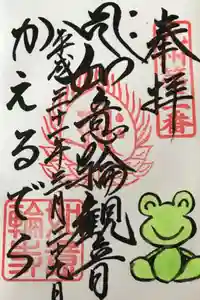 奉拝
如意輪観音
平成三十一年三月二九日
かえるでら